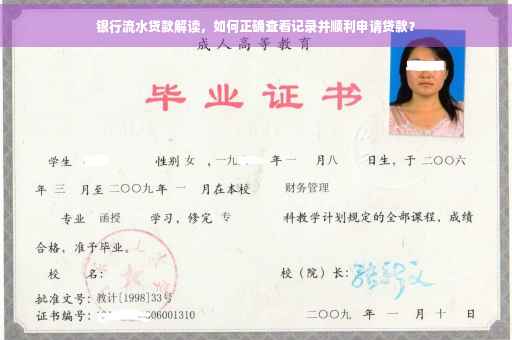 银行流水贷款解读，如何正确查看记录并顺利申请贷款？
成人高等教育
毕业证书
学生 性别 女 ，一九 年 一 月 八 日生，于 二〇〇六
年 三 月至 二〇〇九 年 一 月在本校 财务管理
专业 函授 学习，修完 专 科教学计划规定的全部课程，成绩
合格，准予毕业。
校 名： 校（院）长：
批准文号：教计[1998]33号
证书编号： 06001310 二〇〇九 年 一 月 十 日